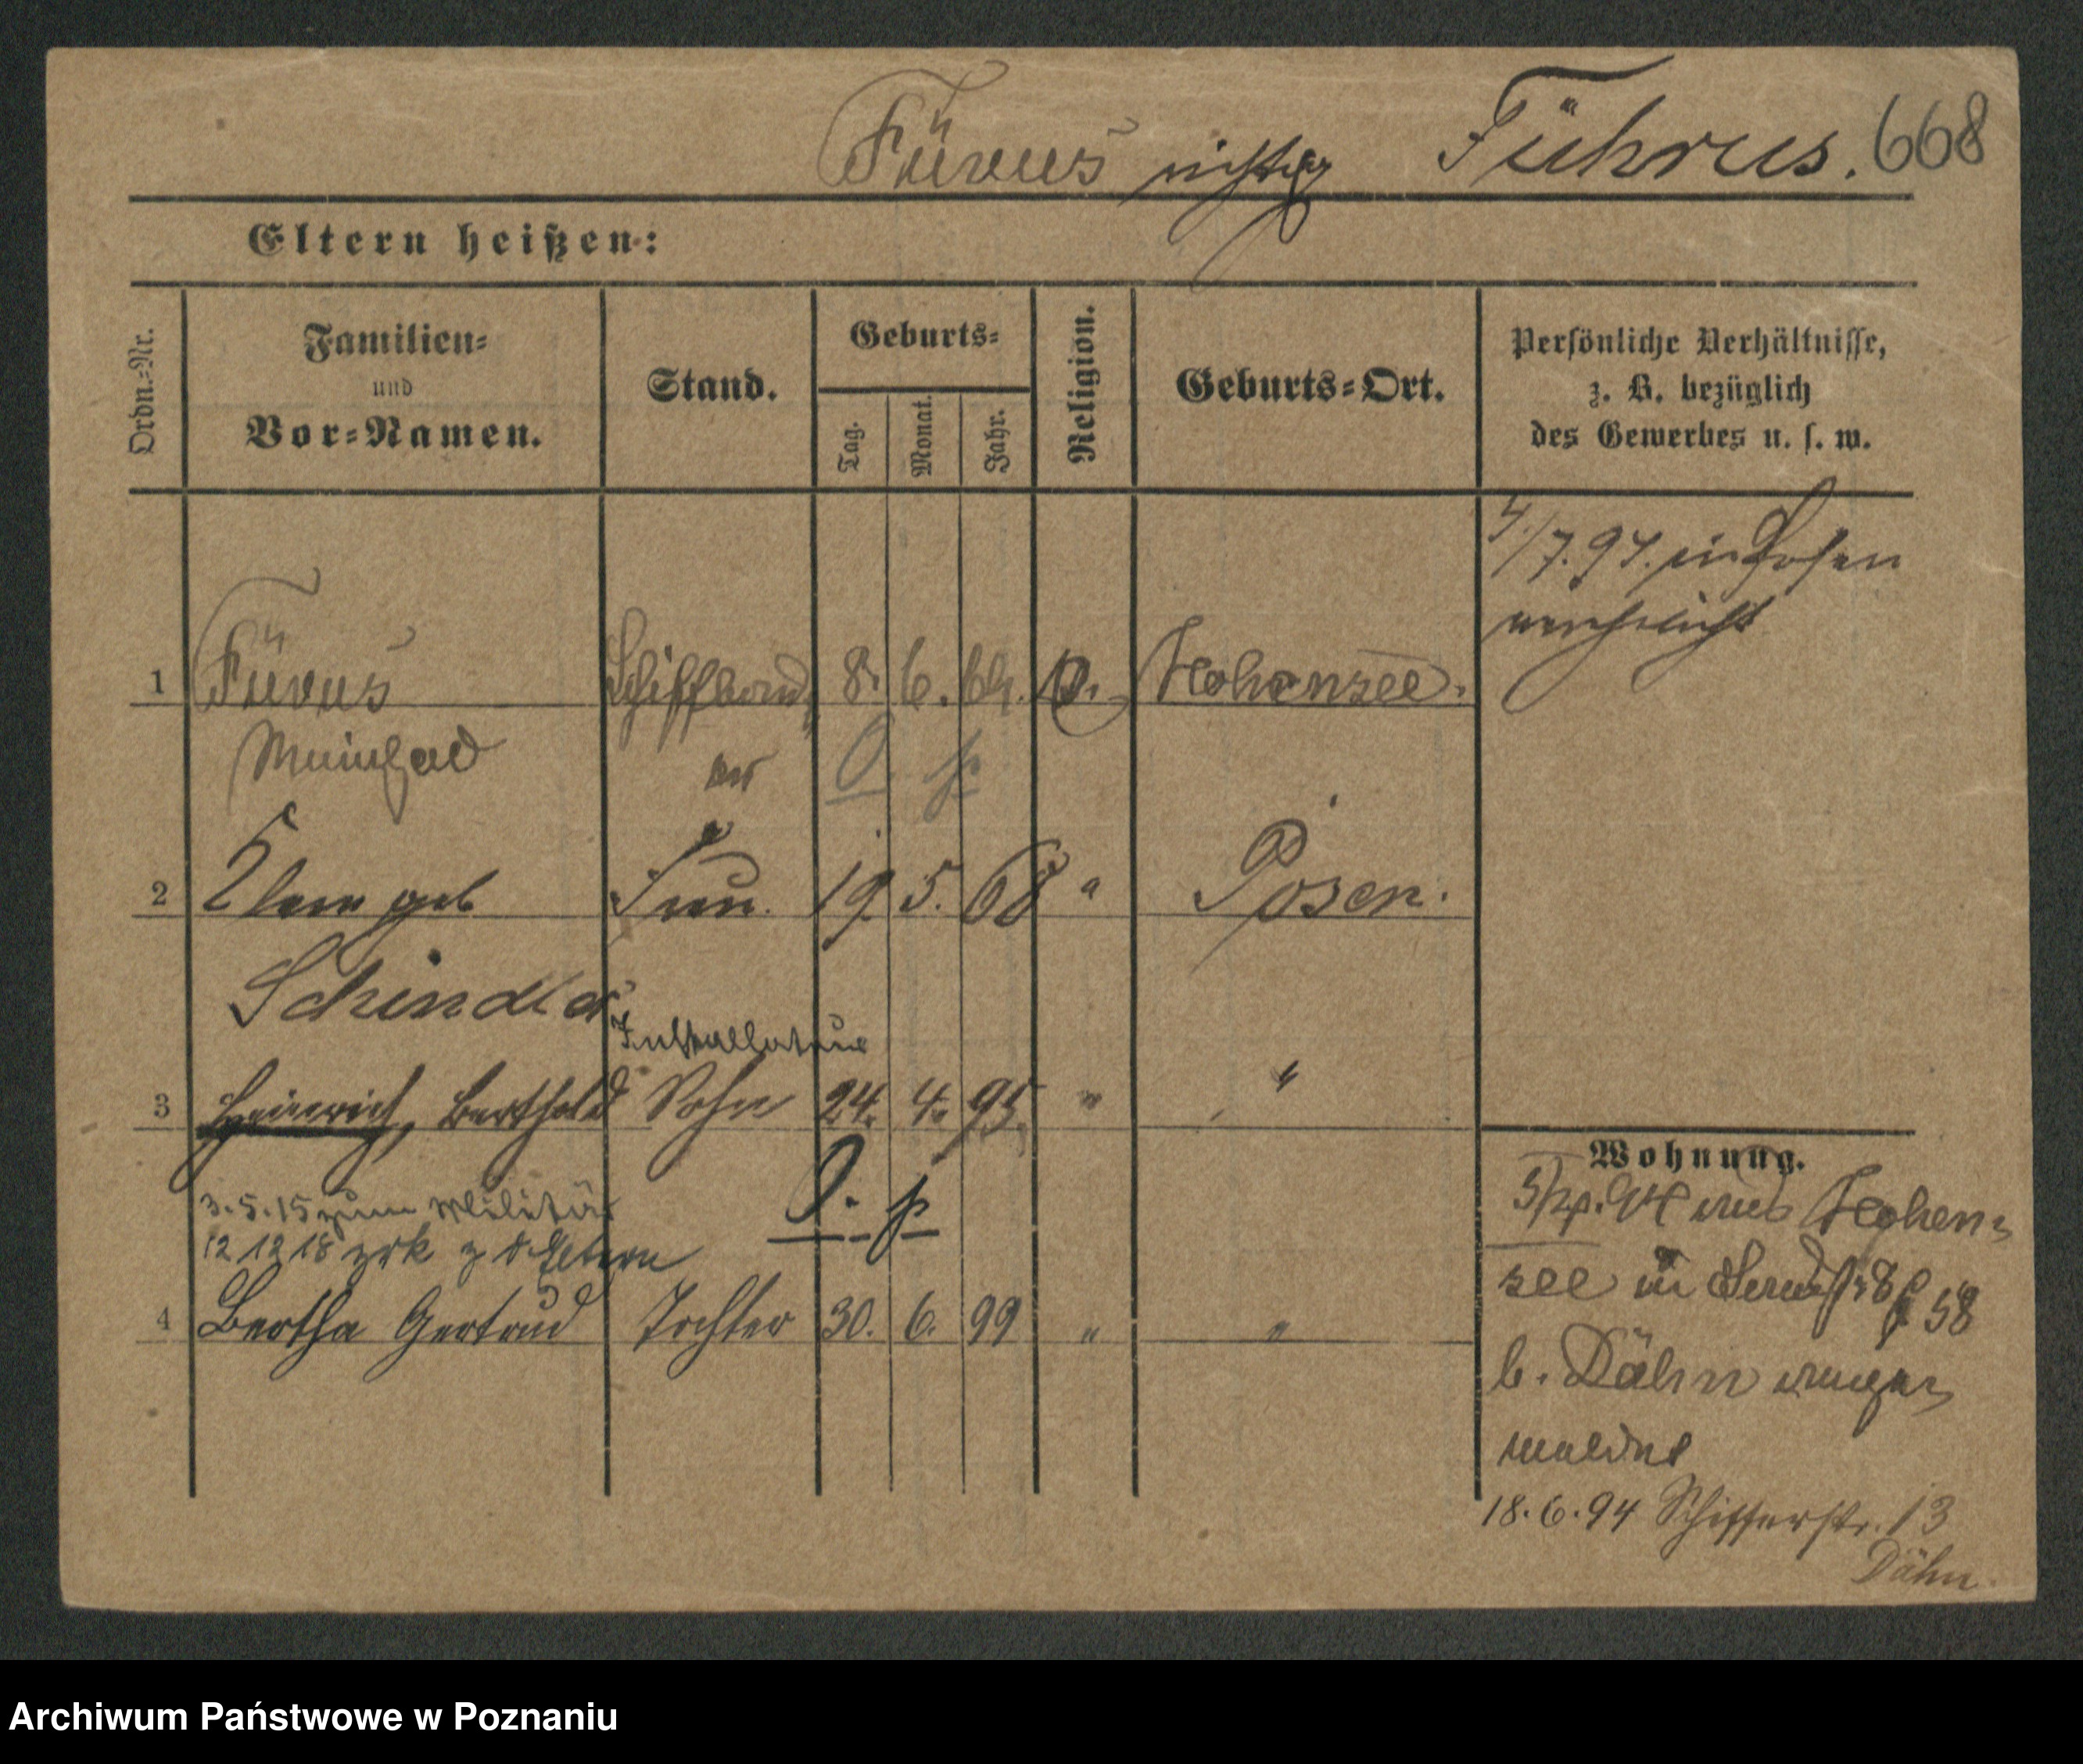 Fürus richtig Führus. 668
Eltern heißen:
Ordn.-Nr.
Familien-
und
Vor-Namen.
Stand.
Geburts-
Tag.
Monat.
Jahr.
Religion.
Geburts-Ort.
Persönliche Verhältnisse,
z. B. bezüglich
des Gewerbes u. s. w.
4/7.94. in Posen
verehelicht
1 Fürus 8. 6. 64. Hohensee.
2 geb Frau. 19. 5. 68 " Posen.
Schindler
Installateur
3 Heinrich, Berthold Sohn 24. 4. 95. " "
3.5.15 zum Militär
12 12 18 zrk z d. Eltern
4 Bertha Gertrud Tochter 30. 6. 99 " "
Wohnung.
94 aus Hohen-
see in
b. Dähn
18.6.94 Schifferstr. 13
Dähn
Archiwum Państwowe w Poznaniu